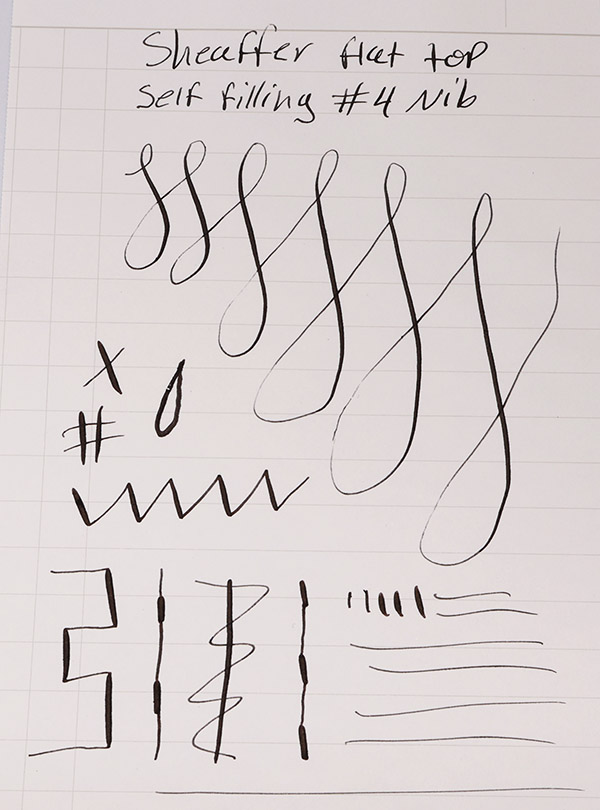 Sheaffer flat top
Self filling #4 Nib
X
#